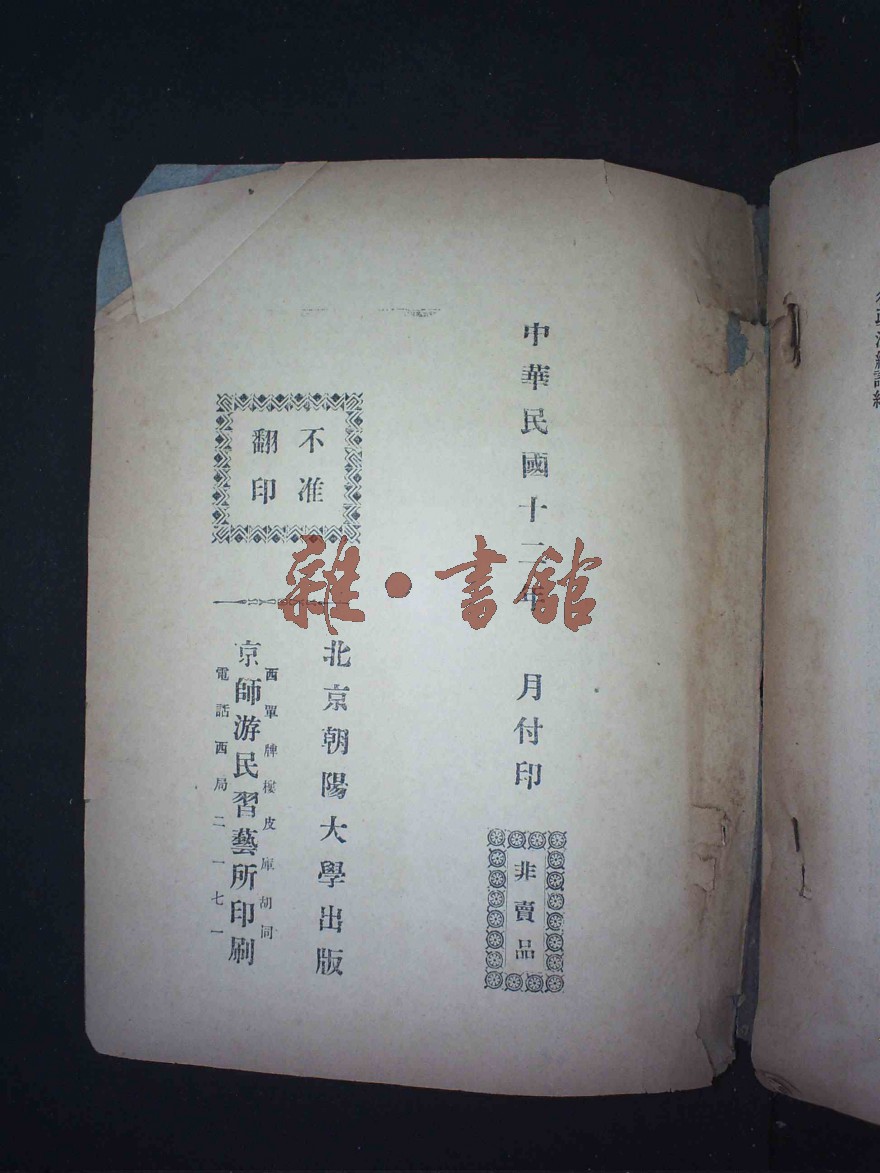 中華民國十二年　月付印
非賣品
不准
翻印
北京朝陽大學出版
西單牌樓皮庫胡同
京師游民習藝所印刷
電話西局二一七一
雜·書館